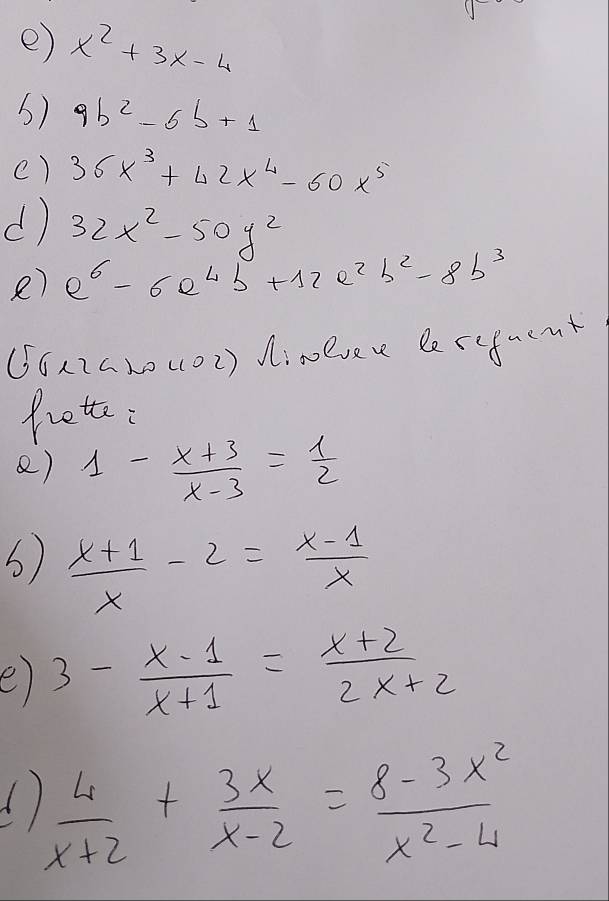 a) x² + 3x - 4
b) 9b² - 6b + 1
c) 36x³ + 42x⁴ - 60x⁵
d) 32x² - 50y²
e) a⁶ - 6a⁴b + 12a²b² - 8b³
Risolvere le seguent
fratte:
a) 1 - (x+3)/(x-3) = 1/2
b) (x+1)/x - 2 = (x-1)/x
c) 3 - (x-1)/(x+1) = (x+2)/(2x+2)
d) 4/(x+2) + 3x/(x-2) = (8-3x²)/(x²-4)